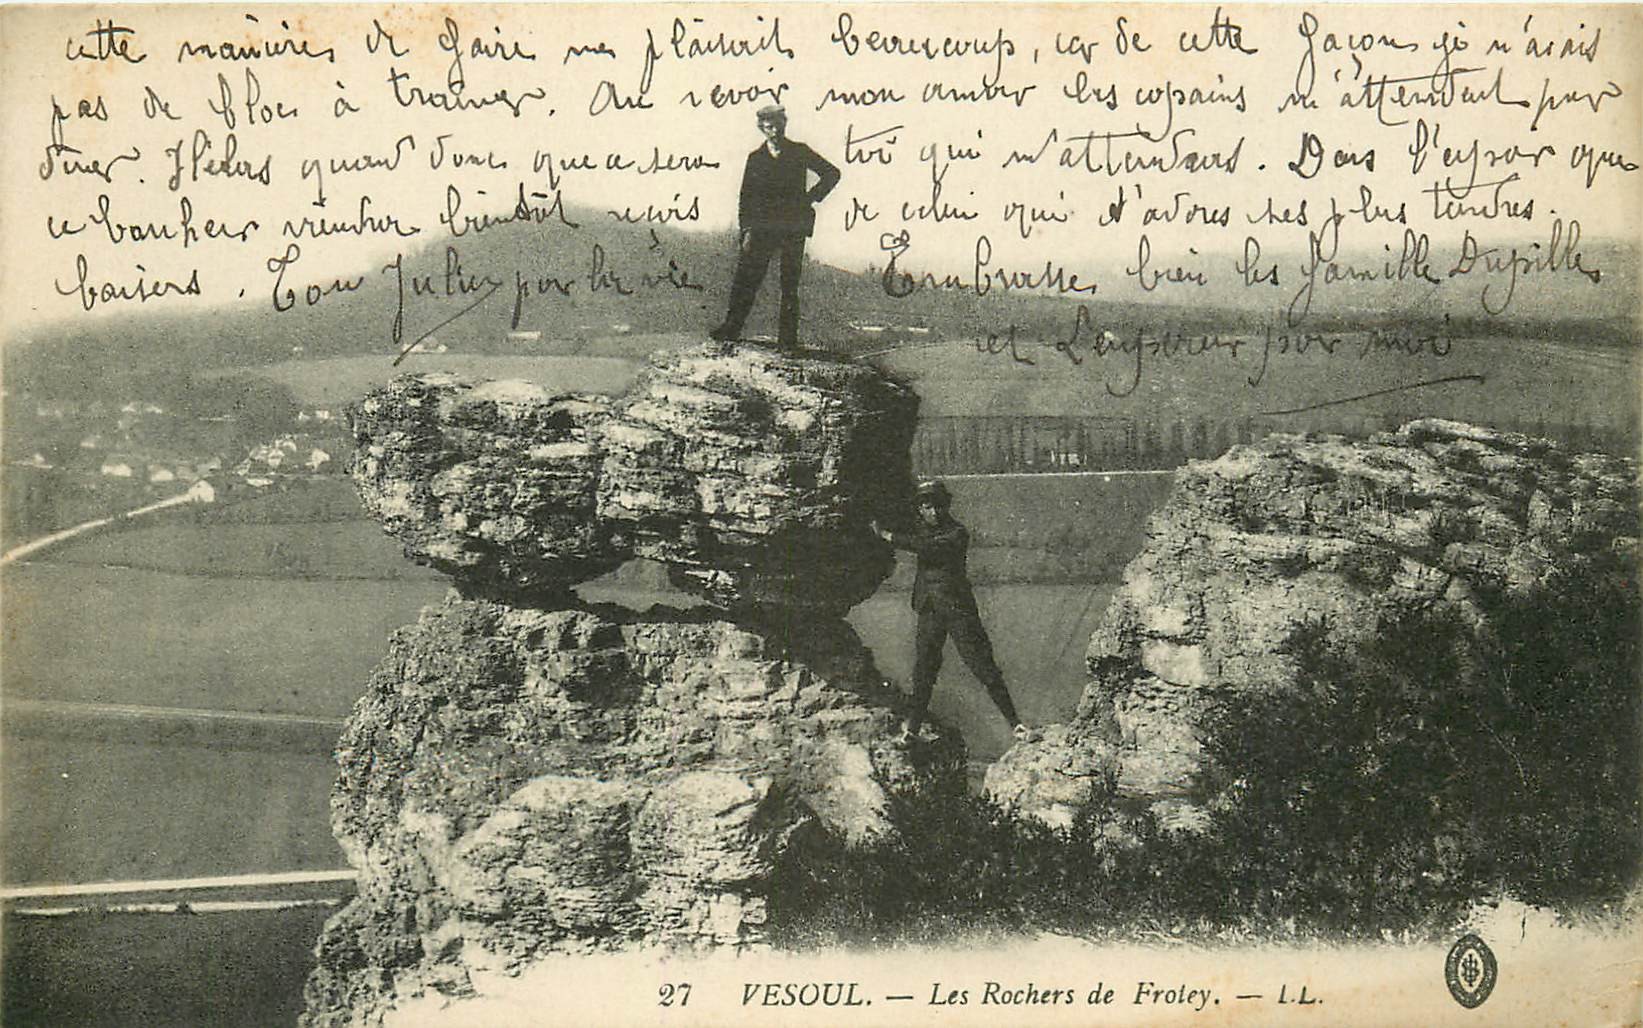 cette manière de faire me plaisait beaucoup, car de cette façon je n'avais
pas de bloc à trainer. Au revoir mon amour les copains m'attendent pour
diner. Hélas quand donc que ce sera toi qui m'attendras. Dans l'espoir que
ce bonheur viendra bientôt reçois de celui qui t'adores ses plus tendres
baisers. Ton Julien pour la vie. Embrasse bien les famille Dupille
et Lempereur pour moi
27 VESOUL. — Les Rochers de Froley. — LL.